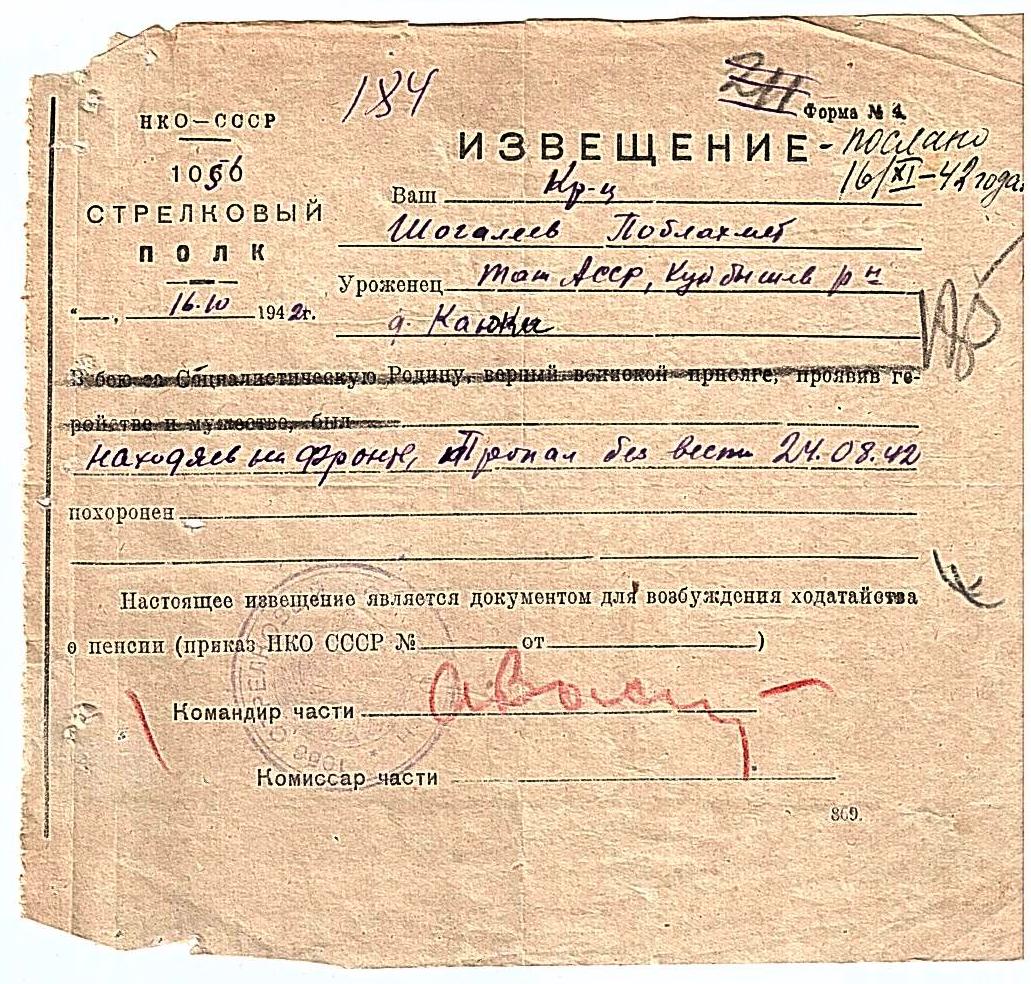 184
211
Форма № 4.
НКО—СССР
1056
СТРЕЛКОВЫЙ
ПОЛК
16.10 1942г.
ИЗВЕЩЕНИЕ - послано
16/XI-42 года.
Ваш Кр-ц
Шогалеев Поблахмет
Уроженец Тат АССР, Куйбышев р-н
д. Каюки
В бою за Социалистическую Родину, верный воинской присяге, проявив ге-
ройство и мужество, был
находясь на фронте, Пропал без вести 24.08.42
похоронен
Настоящее извещение является документом для возбуждения ходатайства
о пенсии (приказ НКО СССР № от )
Командир части
Комиссар части
869.